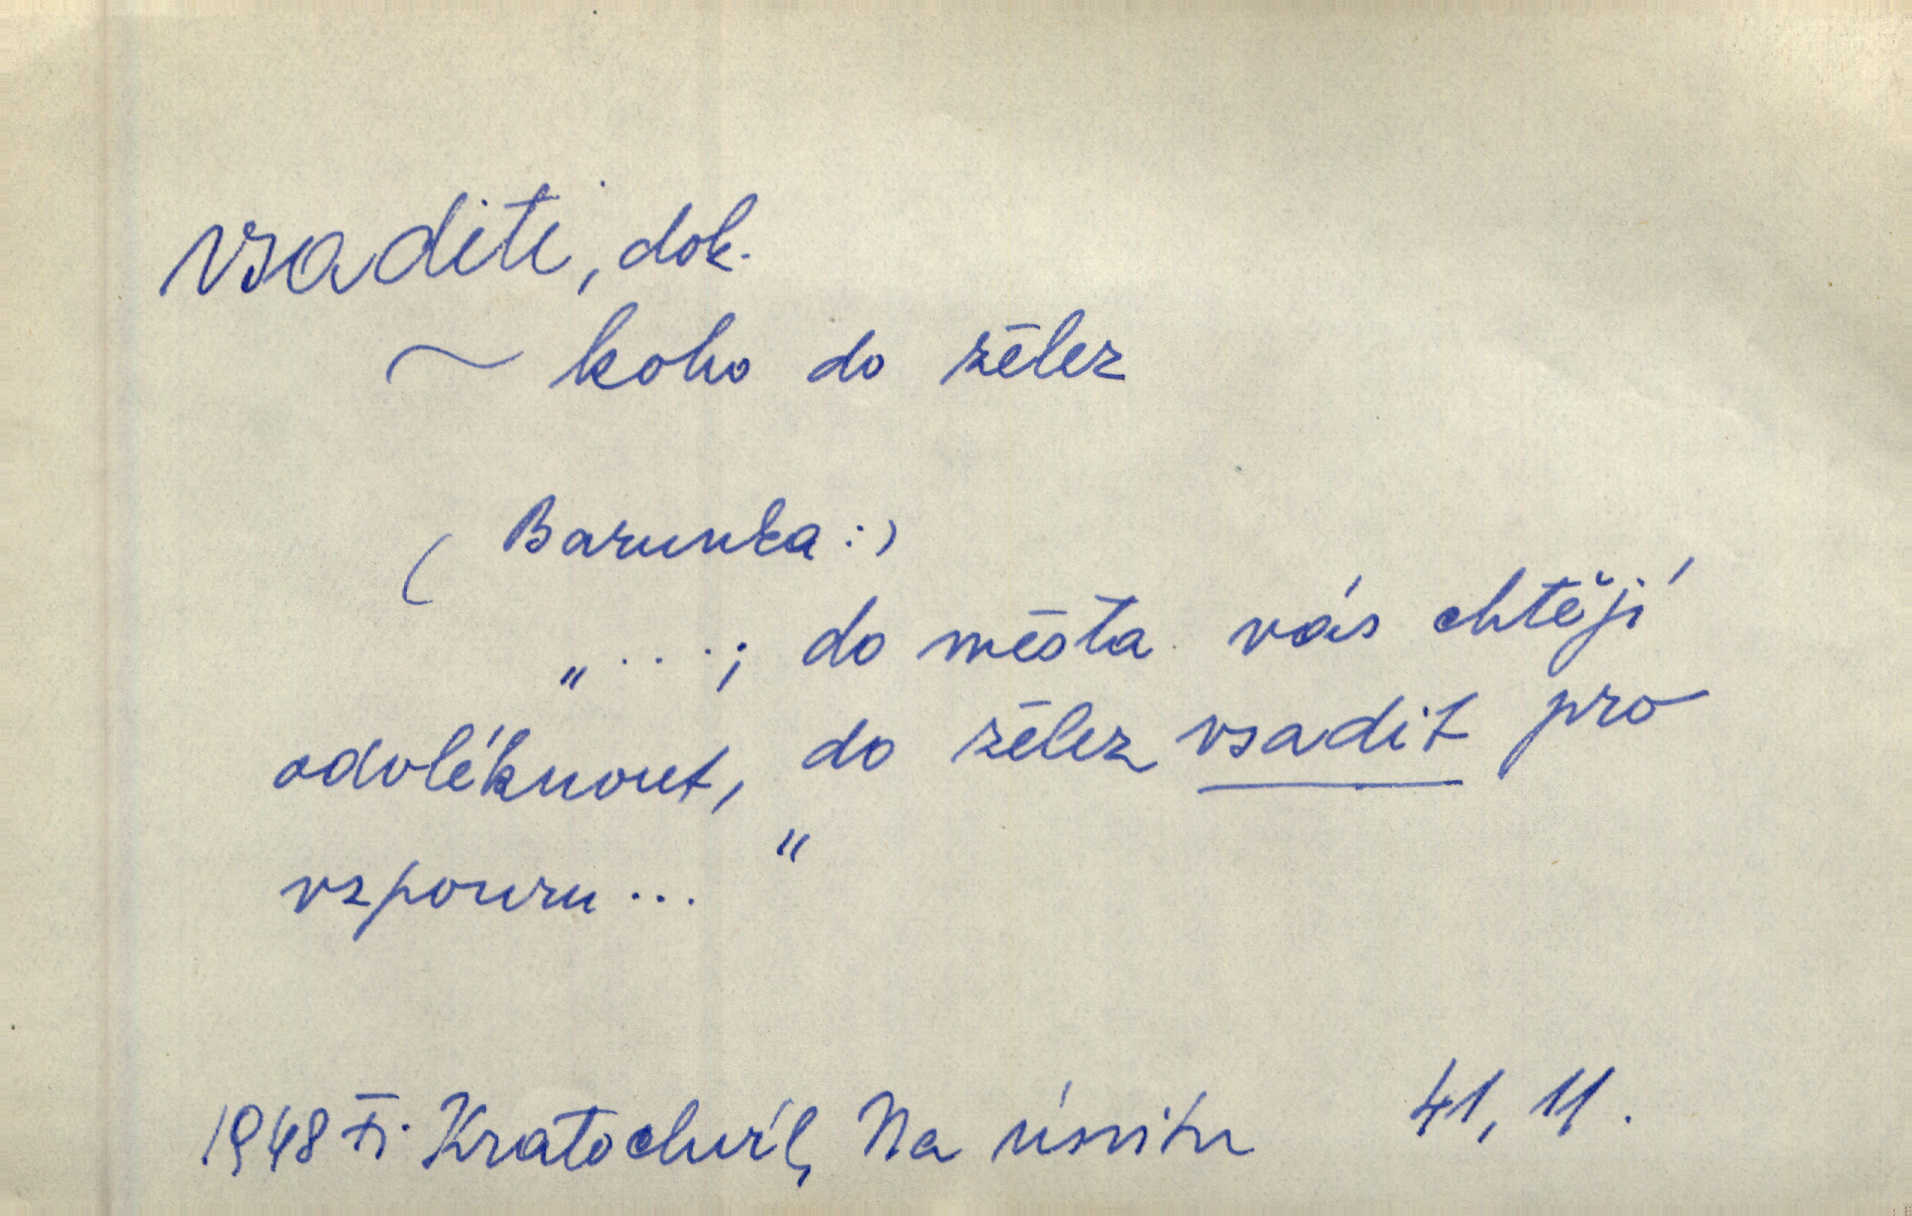 vsaditi, dok.
~ koho do želez
( Barunka :)
„ ...; do města vás chtějí
odvléknout, do želez vsadit pro
vzpouru ... "
1948 Fr. Kratochvíl, Na úsvitu 41, 11.